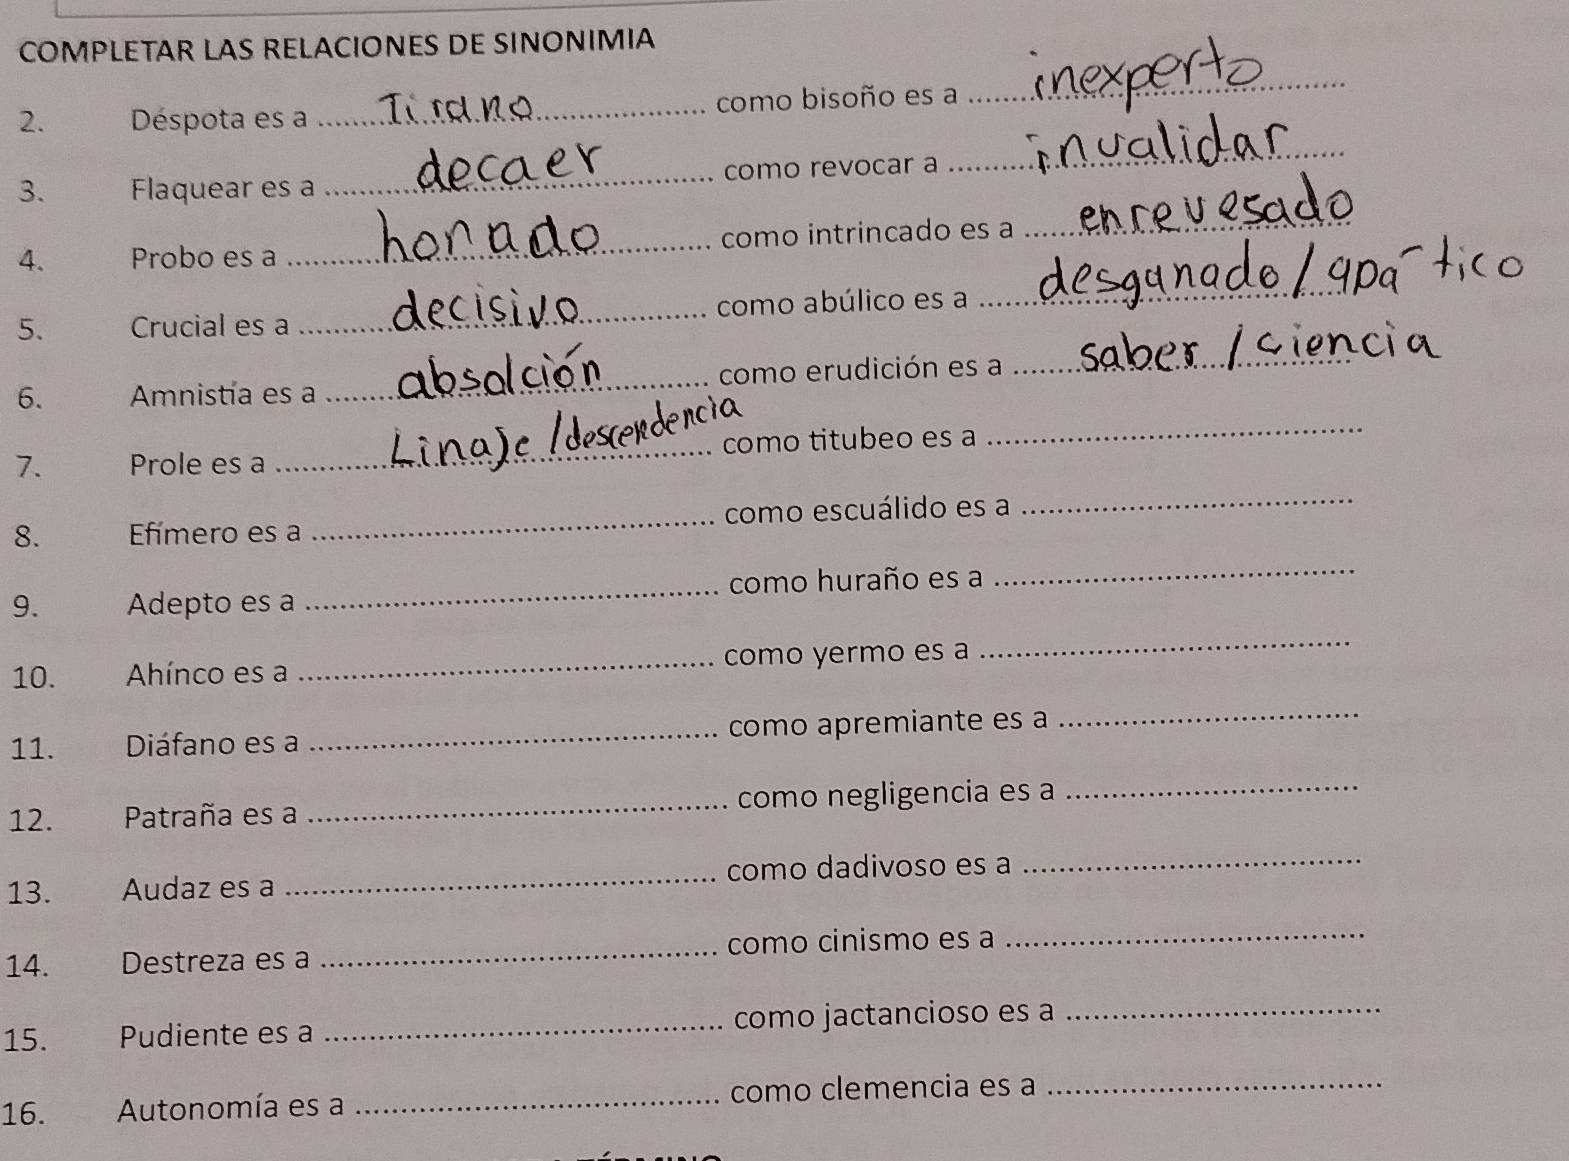 COMPLETAR LAS RELACIONES DE SINONIMIA
2. Déspota es a ........Tirano........ como bisoño es a ........inexperto........
3. Flaquear es a ........decaer........ como revocar a ........invalidar........
4. Probo es a ........honado........ como intrincado es a ........enrevesado
5. Crucial es a ........decisivo........ como abúlico es a ........desganado/apático
6. Amnistía es a ........absolción........ como erudición es a ........saber/ciencia
7. Prole es a ........Linaje/descendencia........ como titubeo es a ................
8. Efímero es a ................ como escuálido es a ................
9. Adepto es a ................ como huraño es a ................
10. Ahínco es a ................ como yermo es a ................
11. Diáfano es a ................ como apremiante es a ................
12. Patraña es a ................ como negligencia es a ................
13. Audaz es a ................ como dadivoso es a ................
14. Destreza es a ................ como cinismo es a ................
15. Pudiente es a ................ como jactancioso es a ................
16. Autonomía es a ................ como clemencia es a ................